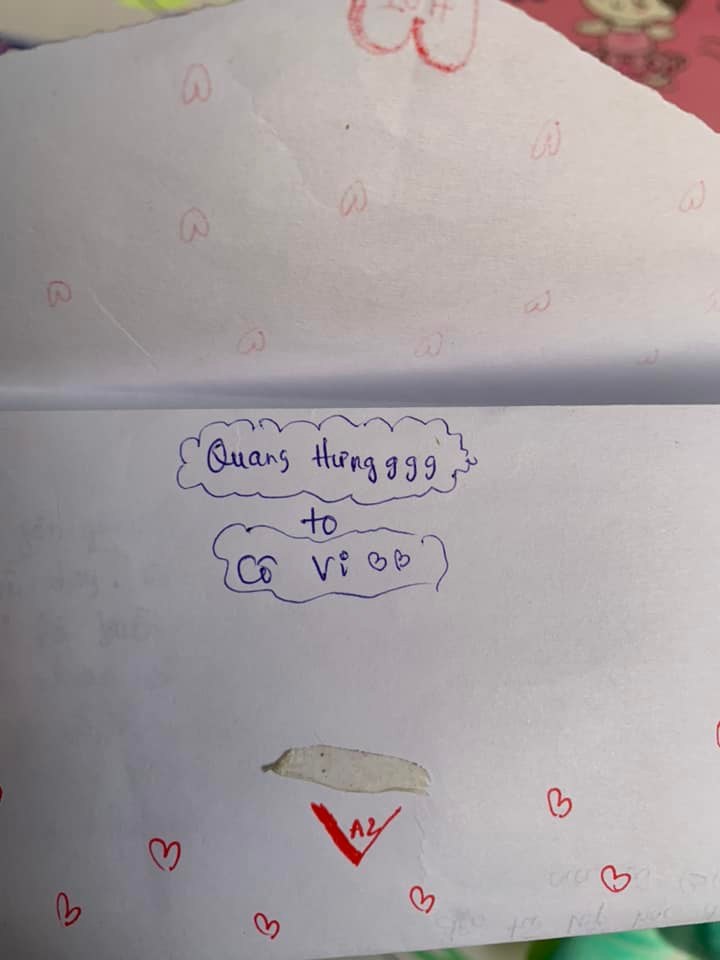 Quang Hưngggg
to
Cô Vi
A2